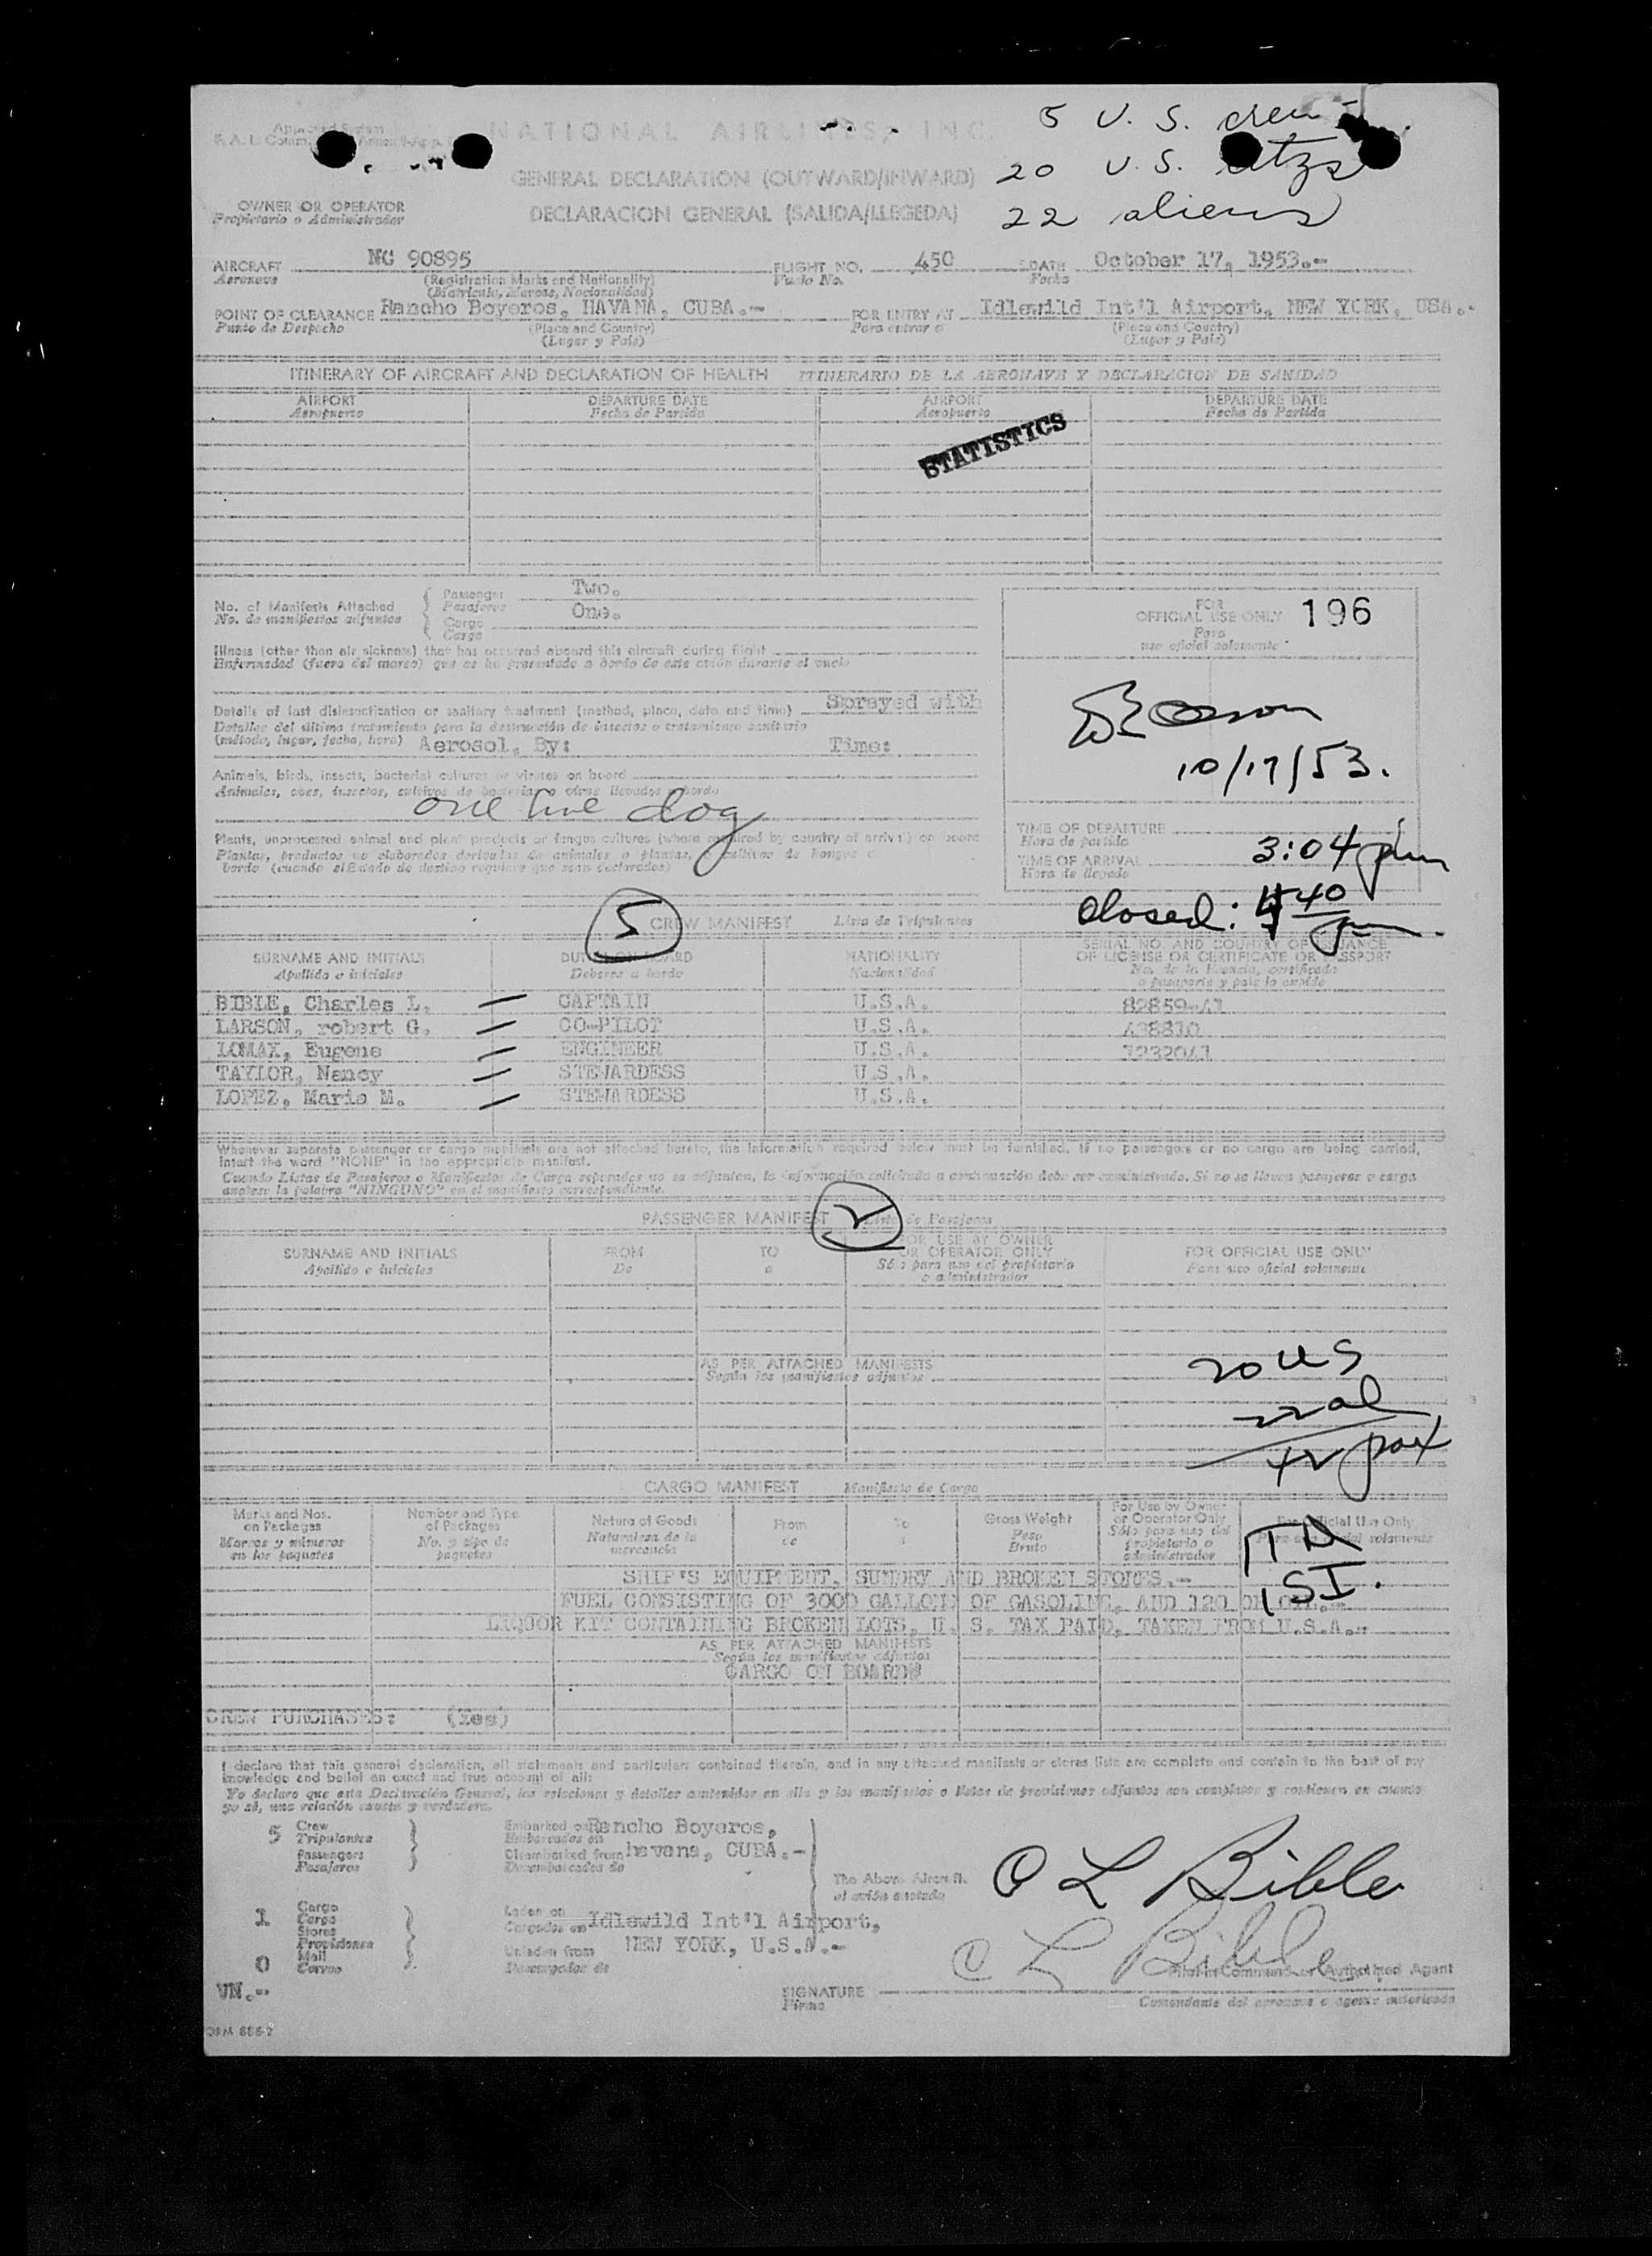 Approved System
NATIONAL AIRLINES, INC.
5 U. S. crew
20 U.S. ctzs
22 aliens
GENERAL DECLARATION (OUTWARD/INWARD)
OWNER OR OPERATOR
Propietario o Administrador
DECLARACION GENERAL (SALIDA/LLEGEDA)
AIRCRAFT NC 90895 FLIGHT NO. 450 DATE October 17, 1953.-
Aeronave (Registration Marks and Nationality) Vuelo No. Fecha
(Matricula, Marcas, Nacionalidad)
POINT OF CLEARANCE Rancho Boyeros, HAVANA, CUBA.- FOR ENTRY AT Idlewild Int'l Airport, NEW YORK, USA.-
Punto de Despacho (Place and Country) Para entrar a (Place and Country)
(Lugar y Pais) (Lugar y Pais)
ITINERARY OF AIRCRAFT AND DECLARATION OF HEALTH ITINERARIO DE LA AERONAVE Y DECLARACION DE SANIDAD
AIRPORT DEPARTURE DATE AIRPORT DEPARTURE DATE
Aeropuerto Fecha de Partida Aeropuerto Fecha de Partida
STATISTICS
No. of Manifests Attached Passenger Two.
No. de manifiestos adjuntos Pasajeros
Cargo One.
Cargo
FOR
OFFICIAL USE ONLY 196
Para
uso oficial solamente
Illness (other than air sickness) that has occurred aboard this aircraft during flight
Enfermedad (fuera del mareo) que se ha presentado a bordo de este avión durante el vuelo
Details of last disinsectization or sanitary treatment (method, place, date and time) Sprayed with
Detalles del último tratamiento para la destrucción de insectos o tratamiento sanitario
(método, lugar, fecha, hora) Aerosol, By: Time:
10/17/53.
Animals, birds, insects, bacterial cultures or viruses on board
Animales, aves, insectos, cultivos de bacterias o virus llevados a bordo
one live dog
Plants, unprocessed animal and plant products or fungus cultures (where required by country of arrival) on board
Plantas, productos no elaborados derivados de animales o plantas, cultivos de hongos a
bordo (cuando el Estado de destino requiere que sean declarados)
TIME OF DEPARTURE
Hora de partida
TIME OF ARRIVAL 3:04 pm
Hora de llegada
closed: 4 40 pm.
5 CREW MANIFEST Lista de Tripulantes
SURNAME AND INITIALS DUTIES ON BOARD NATIONALITY SERIAL NO. AND COUNTRY OF ISSUANCE
OF LICENSE OR CERTIFICATE OR PASSPORT
Apellido e iniciales Deberes a bordo Nacionalidad No. de la licencia, certificado
o pasaporte y pais lo emitio
BIBLE, Charles L. CAPTAIN U.S.A. 82859-41
LARSON, robert G. CO-PILOT U.S.A. 438810
LOMAX, Eugene ENGINEER U.S.A. 1232041
TAYLOR, Nancy STEWARDESS U.S.A.
LOPEZ, Maria M. STEWARDESS U.S.A.
Whenever separate passenger or cargo manifests are not attached hereto, the information required below must be furnished. If no passengers or no cargo are being carried,
insert the word "NONE" in the appropriate manifest.
Cuando Listas de Pasajeros o Manifiestos de Carga separados no se adjuntan, la información solicitada a continuación debe ser suministrada. Si no se llevan pasajeros o carga
anotese la palabra "NINGUNO" en el manifiesto correspondiente.
PASSENGER MANIFEST 2 Lista de Pasajeros
SURNAME AND INITIALS FROM TO FOR USE BY OWNER OR OPERATOR ONLY FOR OFFICIAL USE ONLY
Apellido e iniciales De a Sólo para uso del propietario o administrador Para uso oficial solamente
AS PER ATTACHED MANIFESTS
Según los manifiestos adjuntos
20 US
22 al
42 pax
CARGO MANIFEST Manifiesto de Carga
Marks and Nos. on Packages Number and Type of Packages Nature of Goods From To Gross Weight For Use by Owner or Operator Only For Official Use Only
Marcas y números en los paquetes No. y tipo de paquetes Naturaleza de la mercancia de a Peso Bruto Sólo para uso del propietario o administrador Para uso oficial solamente
SHIP'S EQUIPMENT, SUNDRY AND BROKEN STORES.-
FUEL CONSISTING OF 3000 GALLONS OF GASOLINE, AND 120 OF OIL.-
LIQUOR KIT CONTAINING BROKEN LOTS, U. S. TAX PAID, TAKEN FROM U.S.A.-
AS PER ATTACHED MANIFESTS
Según los manifiestos adjuntos
CARGO ON BOARD
CREW PURCHASES: (Yes)
I declare that this general declaration, all statements and particulars contained therein, and in any attached manifests or stores lists are complete and contain to the best of my
knowledge and belief an exact and true account of all:
Yo declaro que esta Declaración General, las relaciones y detalles contenidos en ella y los manifiestos o listas de provisiones adjuntos son completos y contienen en cuanto
yo sé, una relación exacta y verdadera.
5 Crew Embarked on Rancho Boyeros,
Tripulantes Embarcados en
Passengers Disembarked from havana, CUBA.-
Pasajeros Desembarcados de
The Above Aircraft.
el avión anotado
C L Bible
1 Cargo Laden on Idlewild Int'l Airport,
Carga Cargados en
Stores
Provisiones Unladen from NEW YORK, U.S.A.-
0 Mail Descargados de
Correo
C L Bible
Pilot in Command or Authorized Agent
VN.-
SIGNATURE
Firma Comandante del aeronave o agente autorizado
FORM 886-2